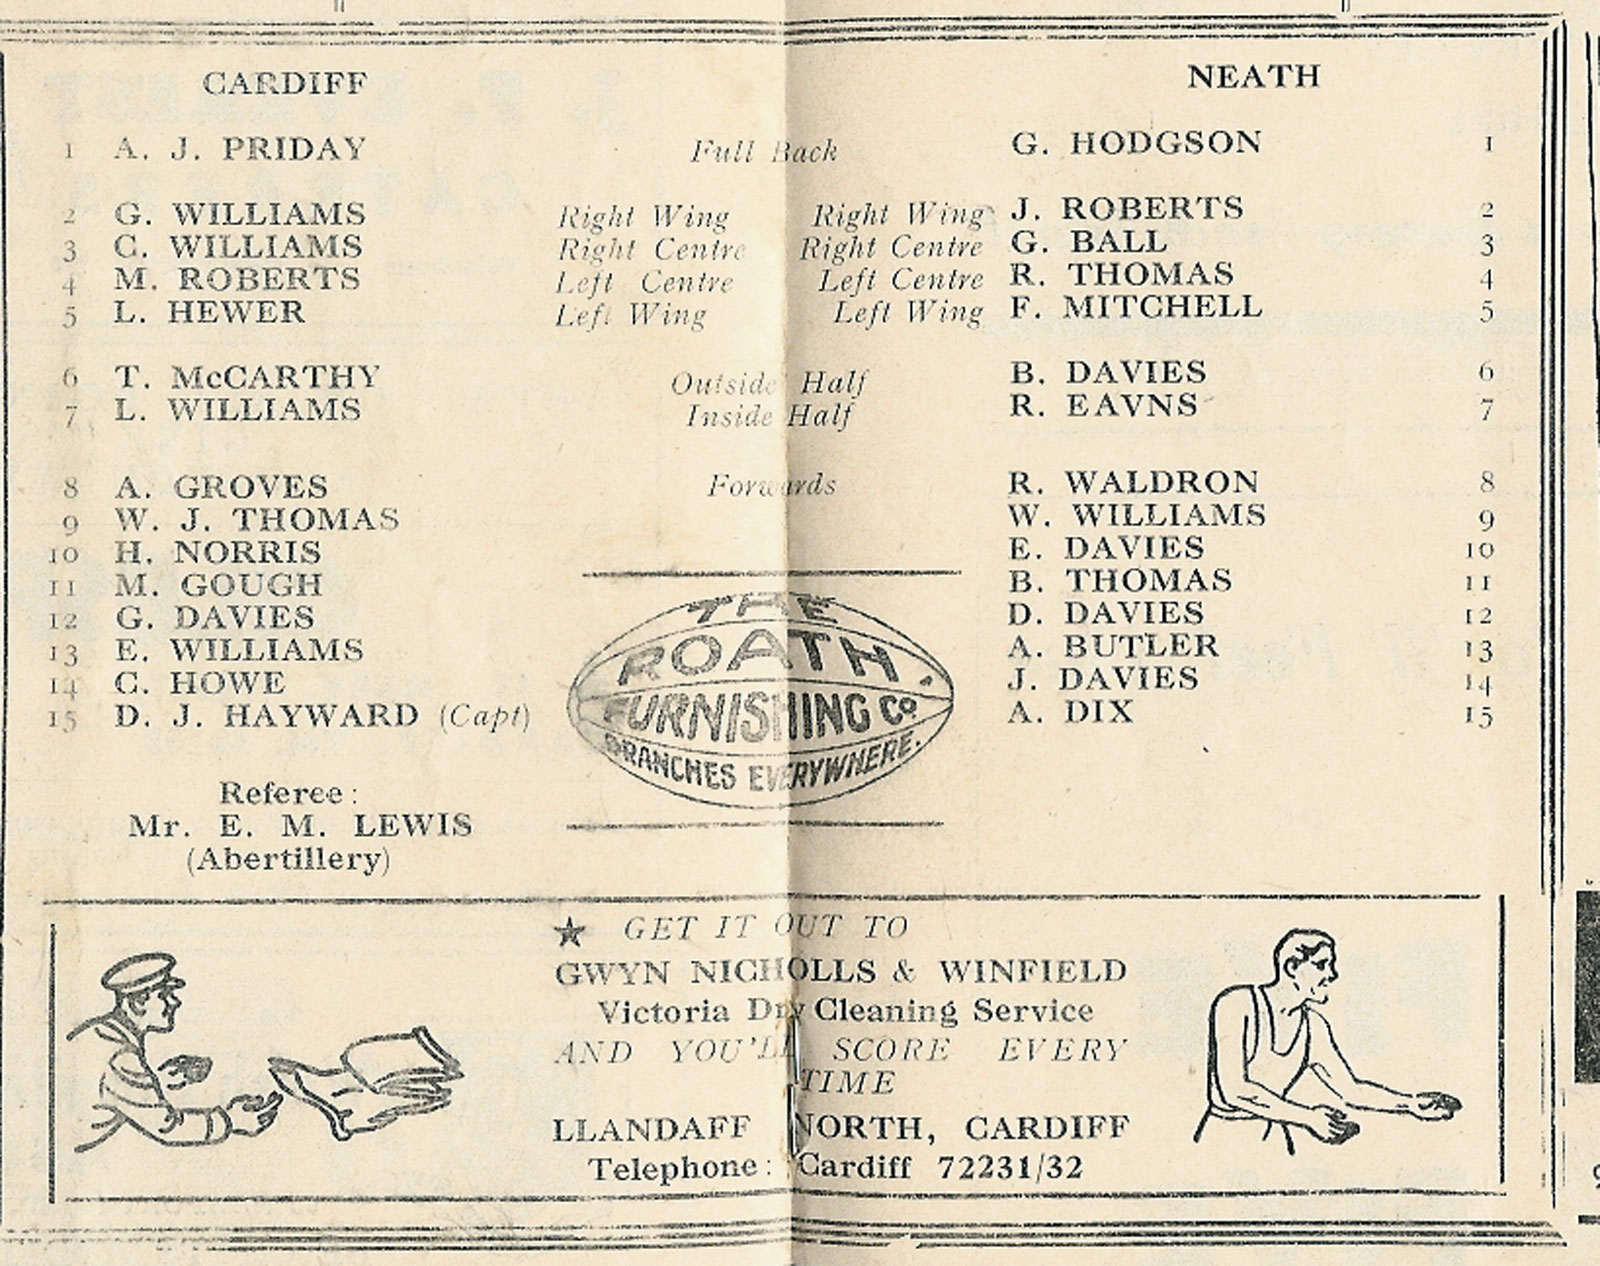 CARDIFF NEATH
1 A. J. PRIDAY Full Back G. HODGSON 1
2 G. WILLIAMS Right Wing Right Wing J. ROBERTS 2
3 C. WILLIAMS Right Centre Right Centre G. BALL 3
4 M. ROBERTS Left Centre Left Centre R. THOMAS 4
5 L. HEWER Left Wing Left Wing F. MITCHELL 5
6 T. McCARTHY Outside Half B. DAVIES 6
7 L. WILLIAMS Inside Half R. EAVNS 7
8 A. GROVES Forwards R. WALDRON 8
9 W. J. THOMAS W. WILLIAMS 9
10 H. NORRIS E. DAVIES 10
11 M. GOUGH B. THOMAS 11
12 G. DAVIES D. DAVIES 12
13 E. WILLIAMS A. BUTLER 13
14 C. HOWE J. DAVIES 14
15 D. J. HAYWARD (Capt) A. DIX 15
THE
ROATH
FURNISHING Co.
BRANCHES EVERYWHERE.
Referee:
Mr. E. M. LEWIS
(Abertillery)
★ GET IT OUT TO
GWYN NICHOLLS & WINFIELD
Victoria Dry Cleaning Service
AND YOU'LL SCORE EVERY
TIME
LLANDAFF NORTH, CARDIFF
Telephone: Cardiff 72231/32